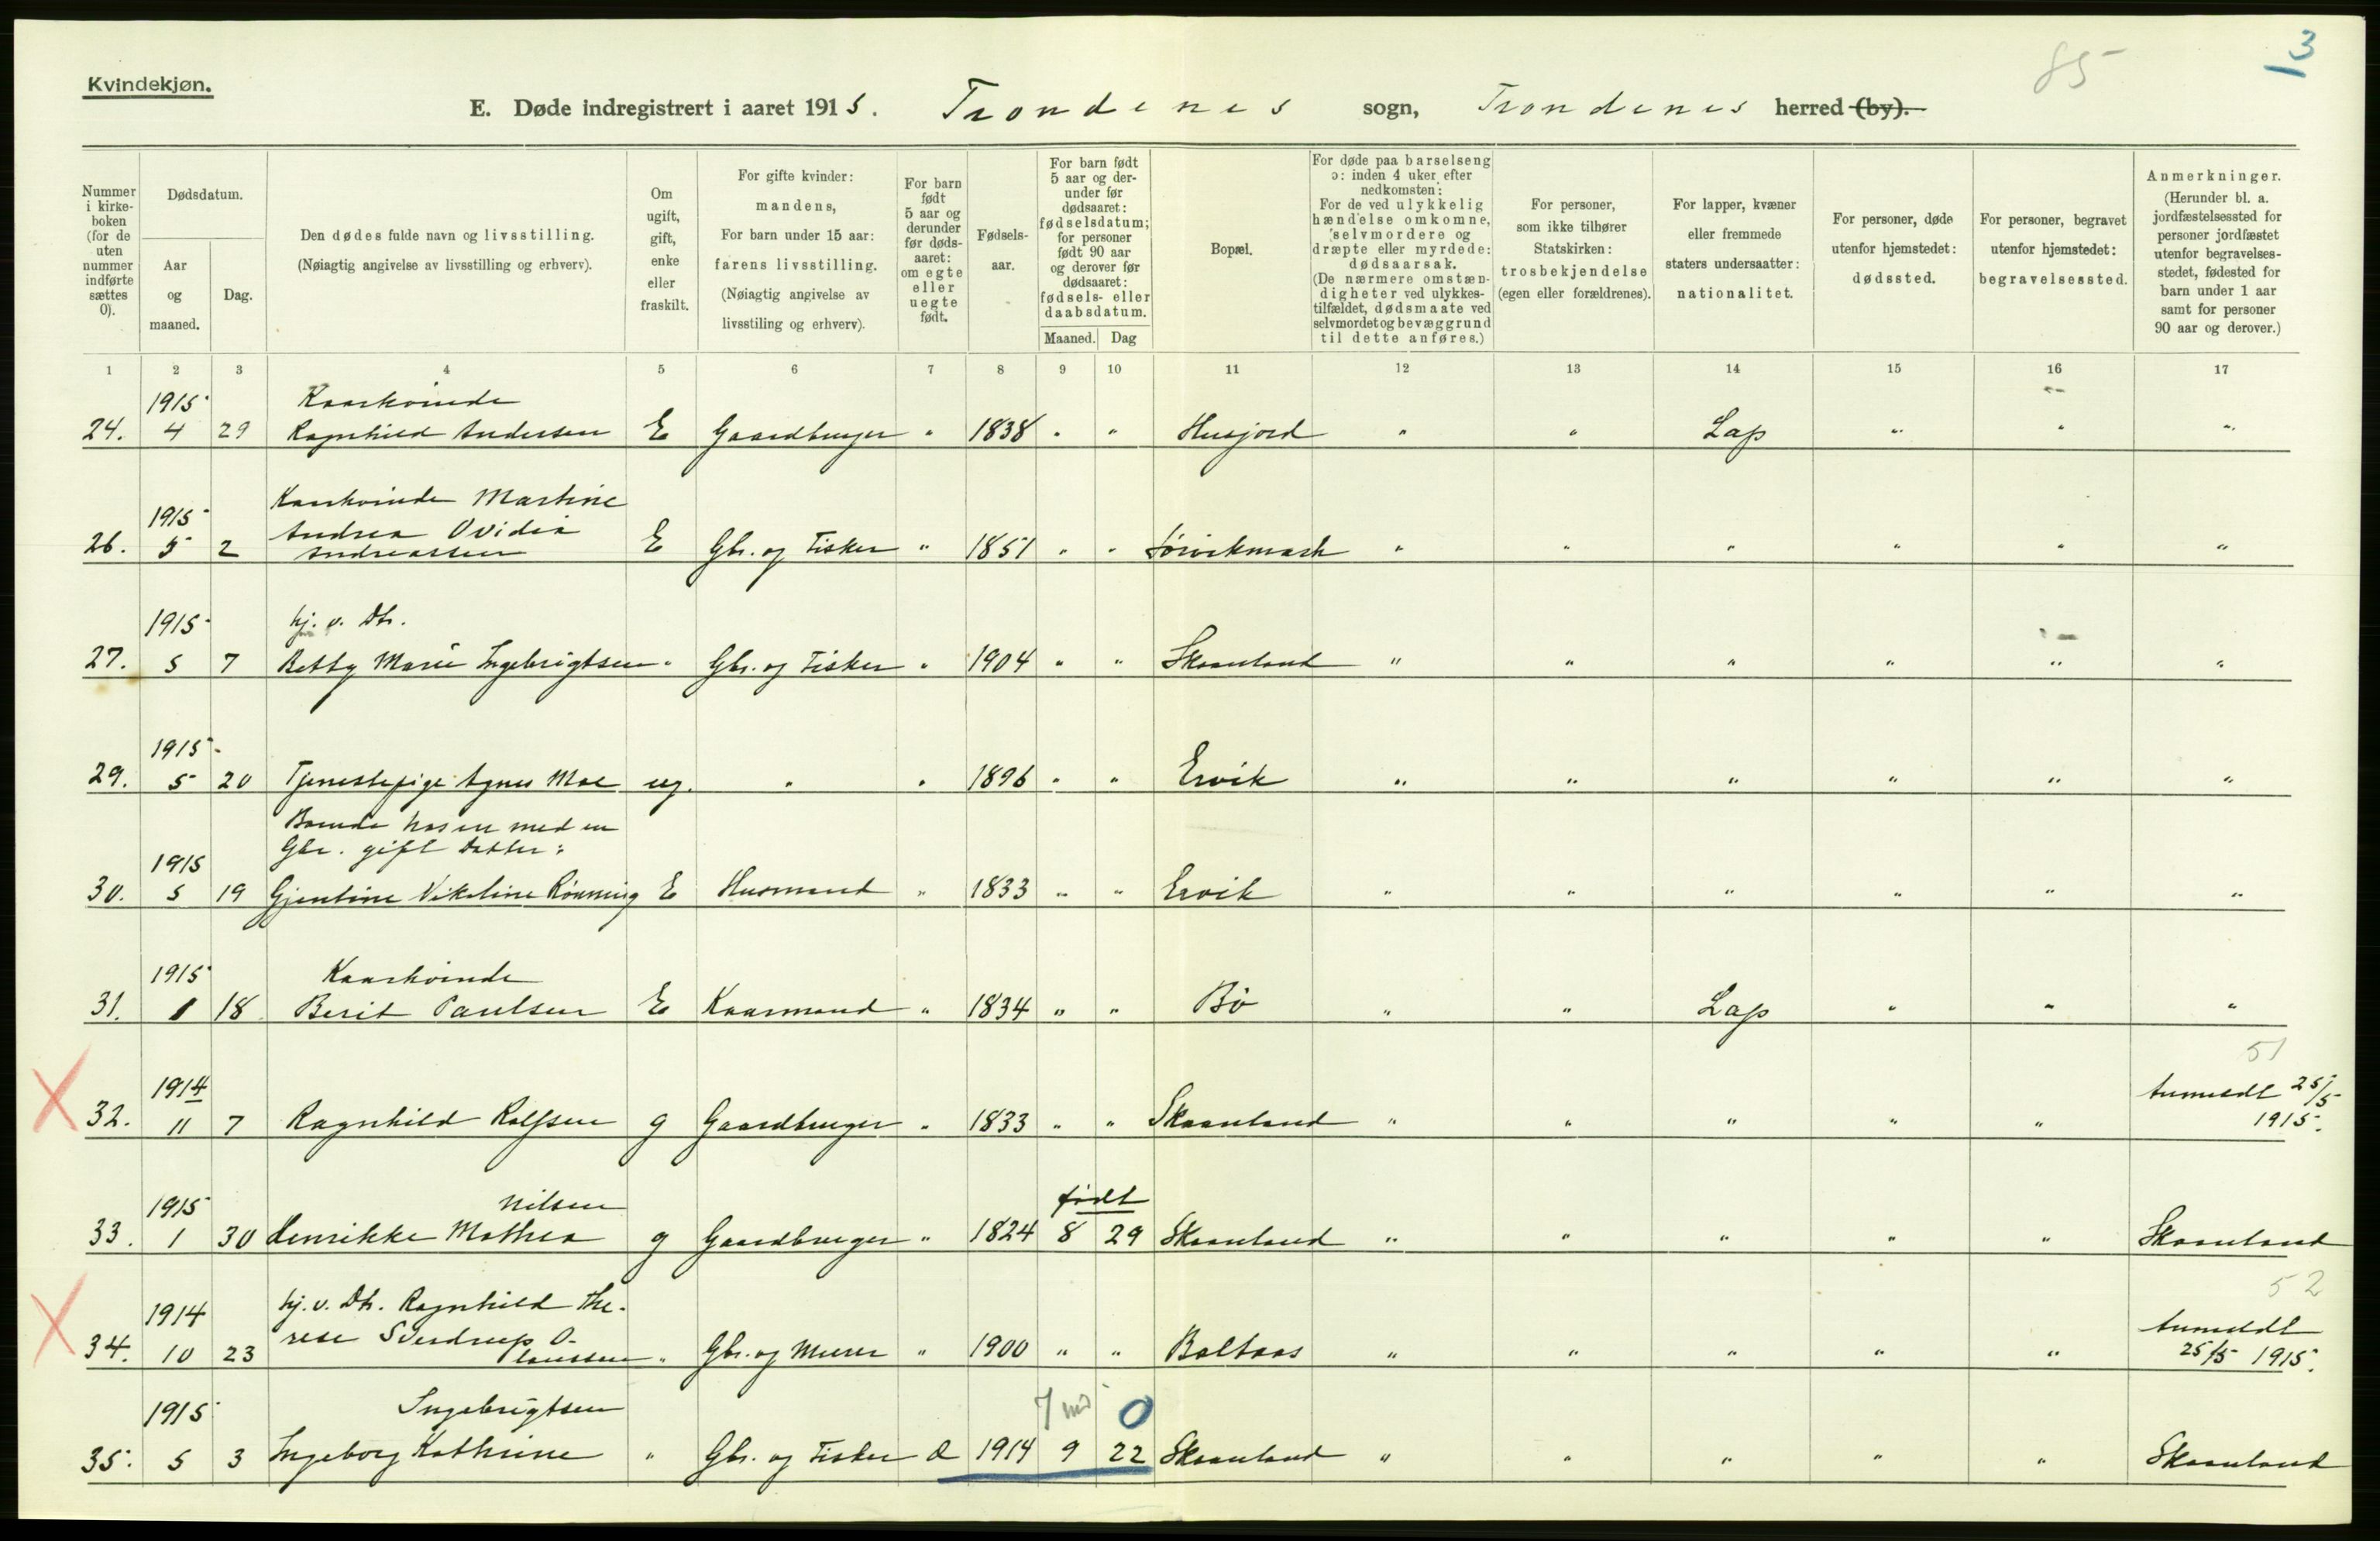 85
3
Kvindekjøn.
E. Døde indregistrert i aaret 1915. Trondenes sogn, Trondenes herred (by).
Nummer i kirke-boken (for de uten nummer indførte sættes 0).
Dødsdatum.
Aar og maaned.
Dag.
Den dødes fulde navn og livsstilling.
(Nøiagtig angivelse av livsstilling og erhverv).
Om ugift, gift, enke eller fraskilt.
For gifte kvinder: mandens,
For barn under 15 aar: farens livsstilling.
(Nøiagtig angivelse av livsstiling og erhverv).
For barn født 5 aar og derunder før døds-aaret: om egte eller uegte født.
Fødsels-aar.
For barn født 5 aar og der-under før dødsaaret: fødselsdatum; for personer født 90 aar og derover før dødsaaret: fødsels- eller daabsdatum.
Maaned. Dag
Bopæl.
For døde paa barselseng ɔ: inden 4 uker efter nedkomsten:
For de ved ulykkelig hændelse omkomne, selvmordere og dræpte eller myrdede: dødsaarsak.
(De nærmere omstæn-digheter ved ulykkes-tilfældet, dødsmaate ved selvmordet og bevæggrund til dette anføres.)
For personer, som ikke tilhører Statskirken: trosbekjendelse (egen eller forældrenes).
For lapper, kvæner eller fremmede staters undersaatter: nationalitet.
For personer, døde utenfor hjemstedet: dødssted.
For personer, begravet utenfor hjemstedet: begravelsessted.
Anmerkninger.
(Herunder bl. a. jordfæstelsessted for personer jordfæstet utenfor begravelses-stedet, fødested for barn under 1 aar samt for personer 90 aar og derover.)
1 2 3 4 5 6 7 8 9 10 11 12 13 14 15 16 17
1915 Kaarkvinde
24. 4 29 Ragnhild Andersen E Gaardbruger " 1838 " " Husjord " " Lap " " "
Kaarkvinde Martine
1915 Andrea Ovidia
26. 5 2 Andreassen E Gbr. og Fisker " 1851 " " Sørvikmark " " " " " "
1915 hj. v. Dtr.
27. 5 7 Betty Marie Ingebrigtsen " Gbr. og Fisker " 1904 " " Skaanland " " " " " "
1915
29. 5 20 Tjenestepige Agnes Moe ug. " " 1896 " " Ervik " " " " " "
Boende hos en med en
1915 Gbr. gift Datter:
30. 5 19 Gjentine Nikoline Rønning E Husmand " 1833 " " Ervik " " " " " "
1915 Kaarkvinde
31. 1 18 Berit Paulsen E Kaarmand " 1834 " " Bø " " Lap " " "
51
1914 Anmeldt 25/5
32. 11 7 Ragnhild Rolfsen g Gaardbruger " 1833 " " Skaanland " " " " " 1915.
1915 Nilsen født
33. 1 30 Henrikke Mathea g Gaardbruger " 1824 8 29 Skaanland " " " " " Skaanland
52
hj. v. Dtr. Ragnhild The-
1914 rese Sverdrup O- Anmeldt
34. 10 23 laussen " Gbr. og Murer " 1900 " " Boltaas " " " " " 25/5 1915.
1915 Ingebrigtsen 7 md 0
35. 5 3 Ingeborg Kathrine " Gbr. og Fisker E 1914 9 22 Skaanland " " " " " Skaanland